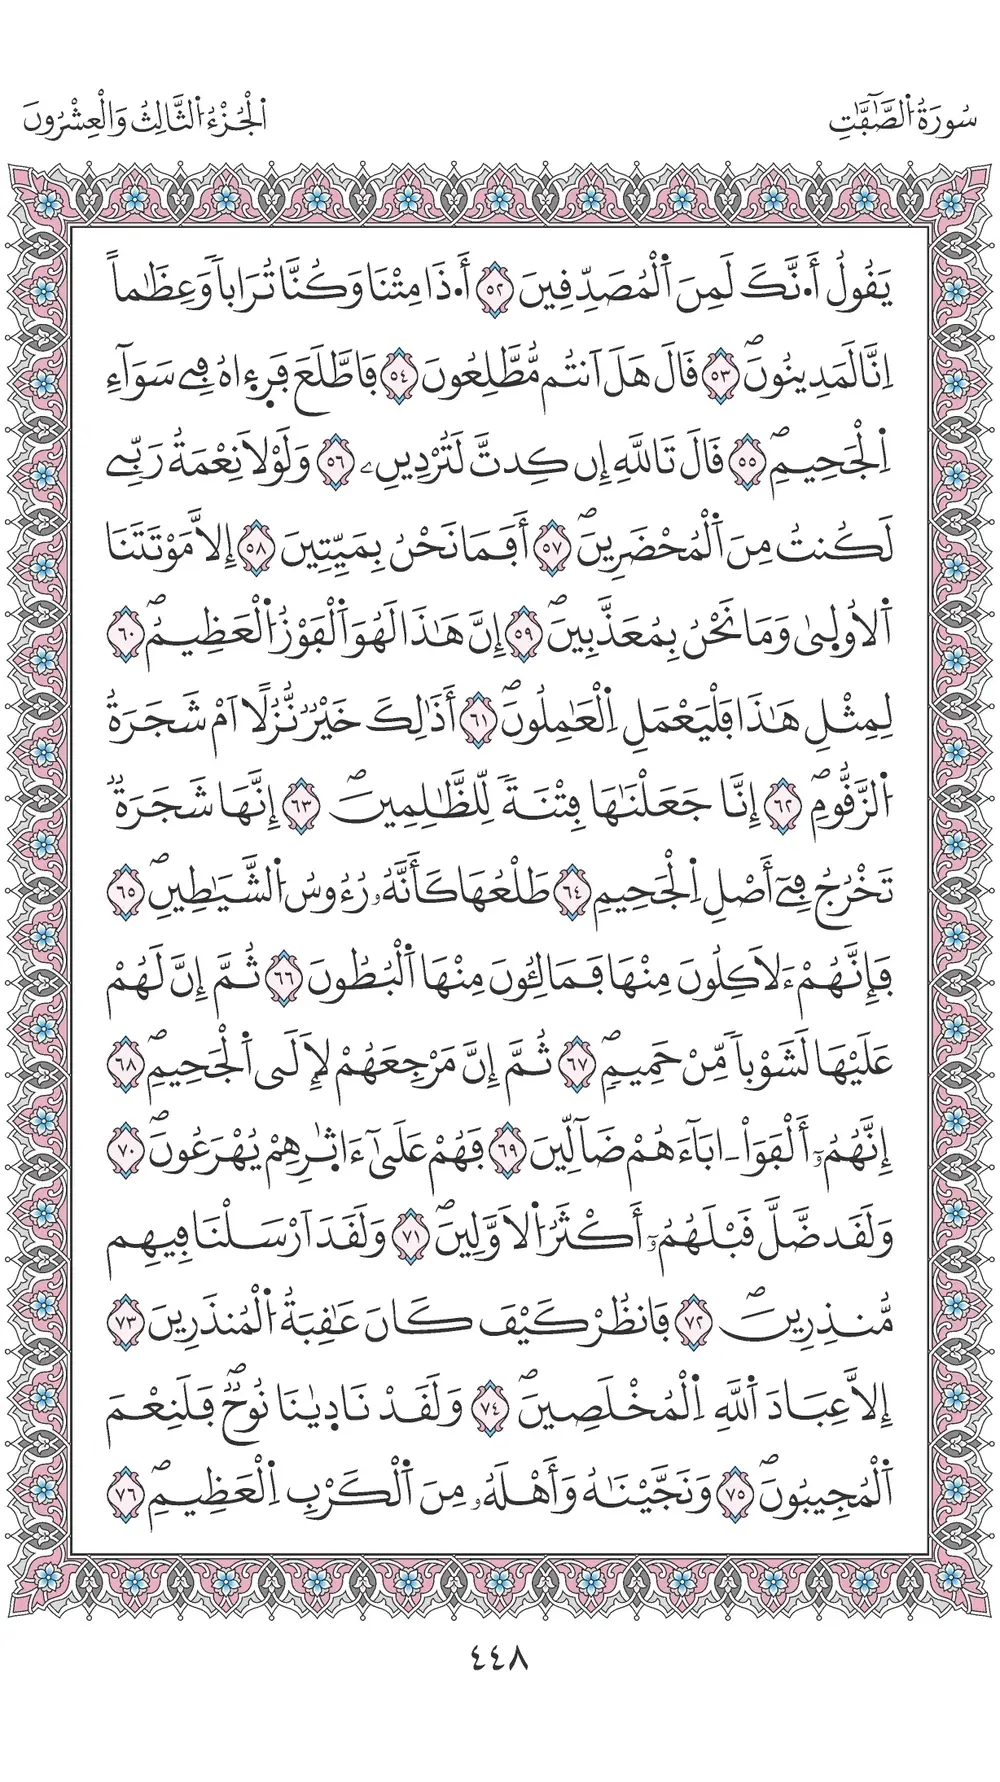 سُورَةُ اُ۬لصَّٰٓفَّٰتِ
اَ۬لْجُزْءُ اُ۬لثَّالِثُ وَالْعِشْرُونَ
يَقُولُ أَ۟نَّكَ لَمِنَ اَ۬لْمُصَدِّفِينَ ٥٢ أَ۟ذَا مِتْنَا وَكُنَّا تُرَاباٗ وَعِظَٰماً
اِنَّا لَمَدِينُونَۖ ٥٣ قَالَ هَلَ اَنتُم مُّطَّلِعُونَ ٥٤ فَاطَّلَعَ فَرِء۪اهُ فِے سَوَآءِ
اِ۬لْجَحِيمِۖ ٥٥ قَالَ تَاللَّهِ إِن كِدتَّ لَتُرْدِينِۦ ٥٦ وَلَوْلَا نِعْمَةُ رَبِّے
لَكُنتُ مِنَ اَ۬لْمُحْضَرِينَۖ ٥٧ أَفَمَا نَحْنُ بِمَيِّتِينَ ٥٨ إِلَّا مَوْتَتَنَا
اَ۬لُاول۪يٰ وَمَا نَحْنُ بِمُعَذَّبِينَۖ ٥٩ إِنَّ هَٰذَا لَهُوَ اَ۬لْفَوْزُ اُ۬لْعَظِيمُۖ ٦٠
لِمِثْلِ هَٰذَا فَلْيَعْمَلِ اِ۬لْعَٰمِلُونَۖ ٦١ أَذَٰلِكَ خَيْرٞ نُّزُلاً اَمْ شَجَرَةُ
اُ۬لزَّقُّومِۖ ٦٢ إِنَّا جَعَلْنَٰهَا فِتْنَةٗ لِّلظَّٰلِمِينَۖ ٦٣ إِنَّهَا شَجَرَةٞ
تَخْرُجُ فِےٓ أَصْلِ اِ۬لْجَحِيمِ ٦٤ طَلْعُهَا كَأَنَّهُۥ رُءُوسُ اُ۬لشَّيَٰطِينِۖ ٦٥
فَإِنَّهُمْ ءَلَاكِلُونَ مِنْهَا فَمَالِـُٔونَ مِنْهَا اَ۬لْبُطُونَ ٦٦ ثُمَّ إِنَّ لَهُمْ
عَلَيْهَا لَشَوْباٗ مِّنْ حَمِيمِۖ ٦٧ ثُمَّ إِنَّ مَرْجِعَهُمْ لَإِلَي اَ۬لْجَحِيمِۖ ٦٨
إِنَّهُمُۥٓ أَلْفَوَاْ اـبَآءَهُمْ ضَآلِّينَ ٦٩ فَهُمْ عَلَيٰٓ ءَاثٰ۪رِهِمْ يُهْرَعُونَۖ ٧٠
وَلَقَد ضَّلَّ قَبْلَهُمُۥٓ أَكْثَرُ اُ۬لَاوَّلِينَۖ ٧١ وَلَقَدَ اَرْسَلْنَا فِيهِم
مُّنذِرِينَۖ ٧٢ فَانظُرْ كَيْفَ كَانَ عَٰقِبَةُ اُ۬لْمُنذَرِينَ ٧٣
إِلَّا عِبَادَ اَ۬للَّهِ اِ۬لْمُخْلَصِينَۖ ٧٤ وَلَقَدْ نَاد۪يٰنَا نُوحٞۖ فَلَنِعْمَ
اَ۬لْمُجِيبُونَۖ ٧٥ وَنَجَّيْنَٰهُ وَأَهْلَهُۥ مِنَ اَ۬لْكَرْبِ اِ۬لْعَظِيمِۖ ٧٦
٤٤٨